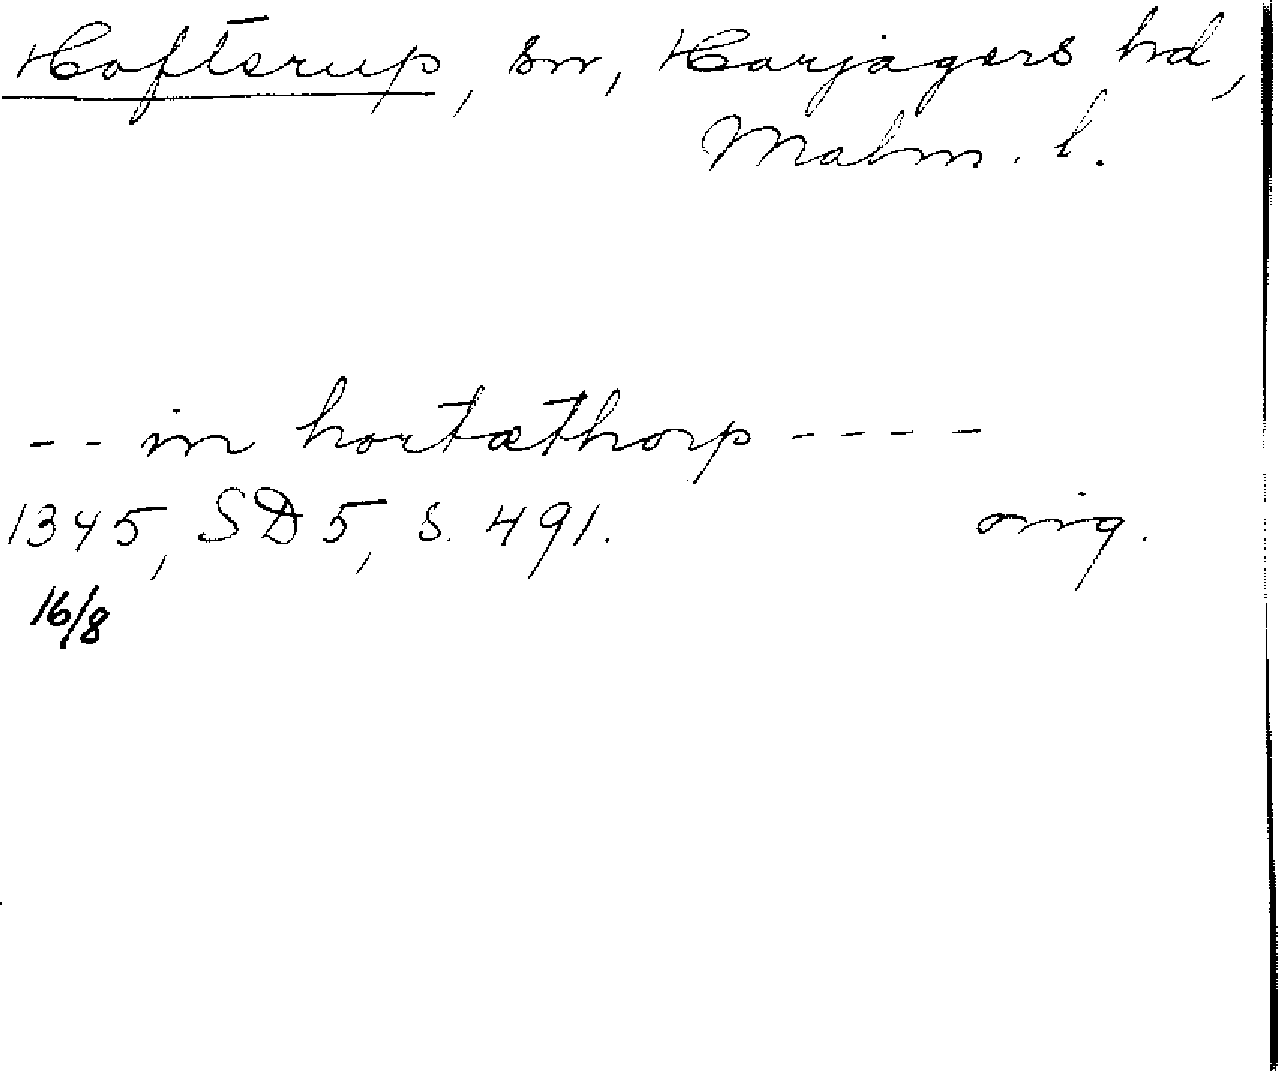 Hofterup, sn, Harjagers hd,
Malm. l.
-- in hortæthorp ----
1345, SD 5, s. 491. orig.
16/8